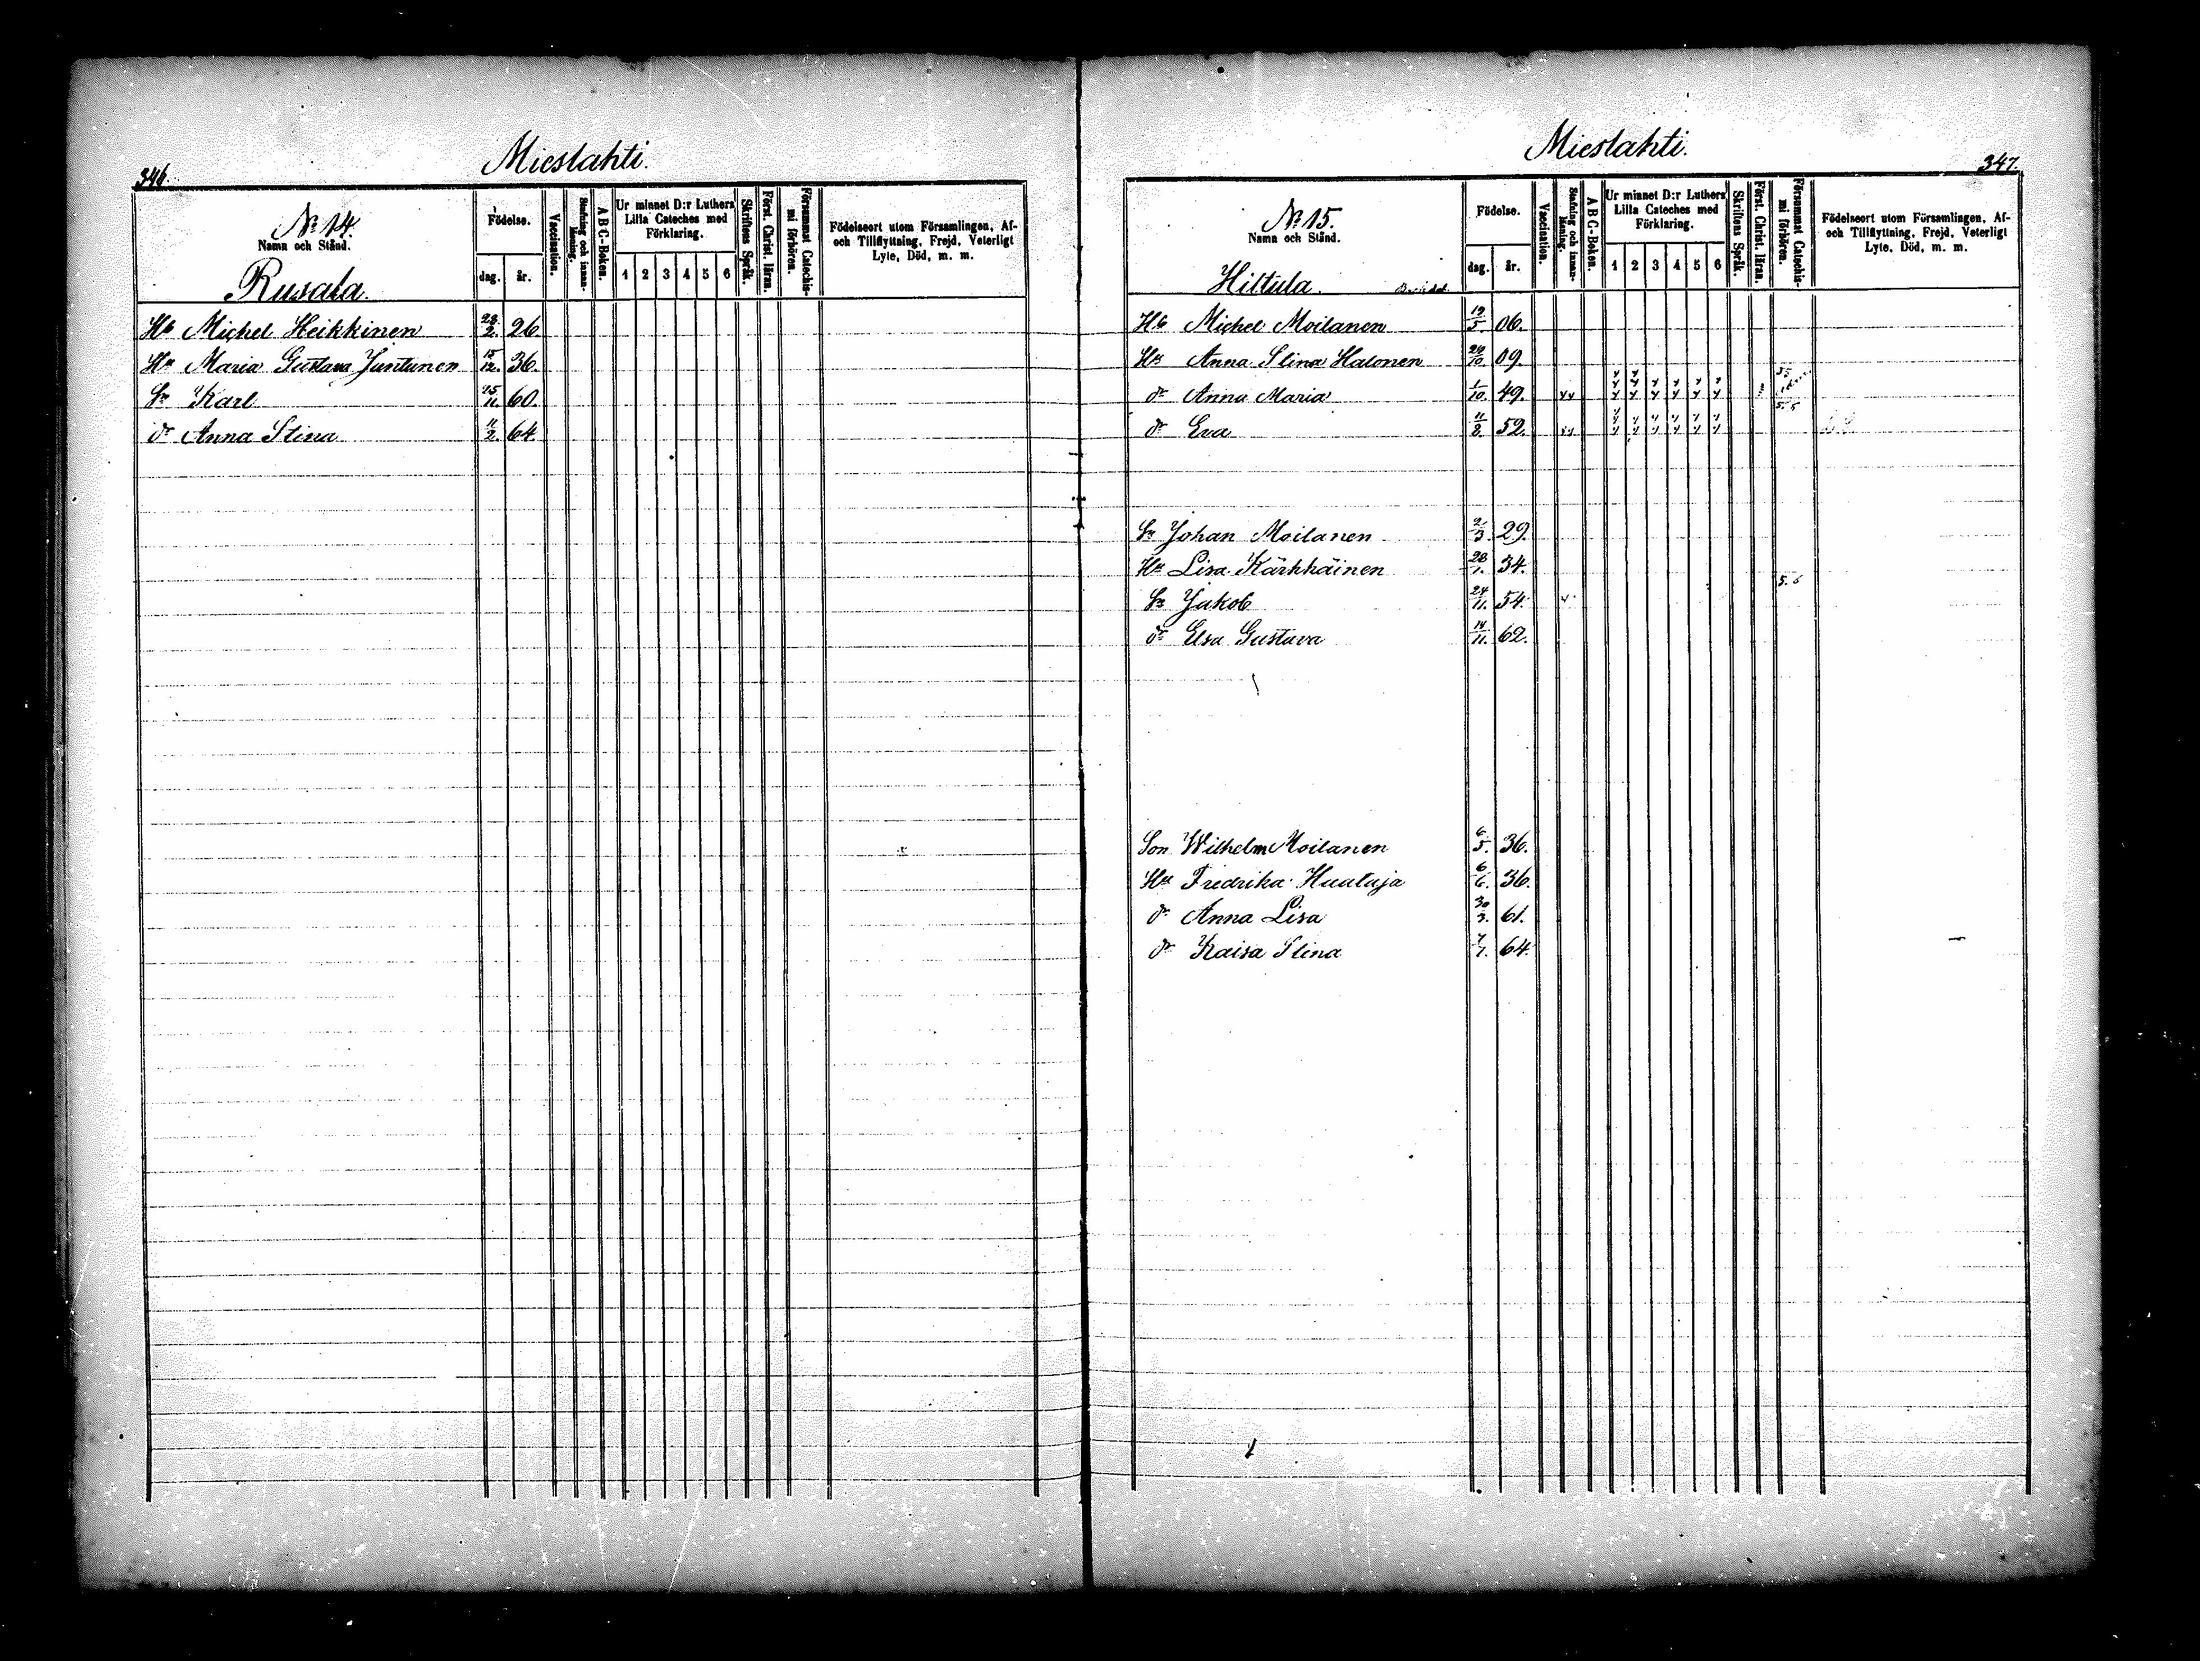 346.
Mieslahti.
No 14.
Namn och Stånd.
Rusala.
Födelse.
dag. år.
Vaccination.
Stafning och innanläsning.
A B C-Boken.
Ur minnet D:r Luthers
Lilla Cateches med
Förklaring.
1 2 3 4 5 6
Skriftens Språk.
Först. Christ. läran.
Försummat Catechismi förhören.
Födelseort utom Församlingen, Af-
och Tillflyttning, Frejd, Veterligt
Lyte, Död, m. m.
Hb Michel Heikkinen 2. 26.
Hu Maria Gustava Juntunen 15/12. 36.
Sn Karl 15/11. 60.
dr Anna Stina 11/2. 64.
Mieslahti.
347.
No 15.
Namn och Stånd.
Hiltula.
Födelse.
dag. år.
Vaccination.
Stafning och innanläsning.
A B C-Boken.
Ur minnet D:r Luthers
Lilla Cateches med
Förklaring.
1 2 3 4 5 6
Skriftens Språk.
Först. Christ. läran.
Försummat Catechismi förhören.
Födelseort utom Församlingen, Af-
och Tillflyttning, Frejd, Veterligt
Lyte, Död, m. m.
Hb Michel Moilanen 19/5. 06.
Hu Anna Stina Halonen 29/10. 09.
dr Anna Maria 1/10. 49.
dr Eva 11/8. 52. 5. 6
Sn Johan Moilanen 2/3. 29.
Hu Lisa Kärkkäinen 28/1. 34.
Sn Jakob 24/11. 54. 5. 6
dr Elsa Gustava 14/11. 62.
Son Wilhelm Moilanen 6/5. 36.
Hu Fredrika Huataja 6/6. 36.
dr Anna Lisa 30/3. 61.
dr Kaisa Stina 7/1. 64.